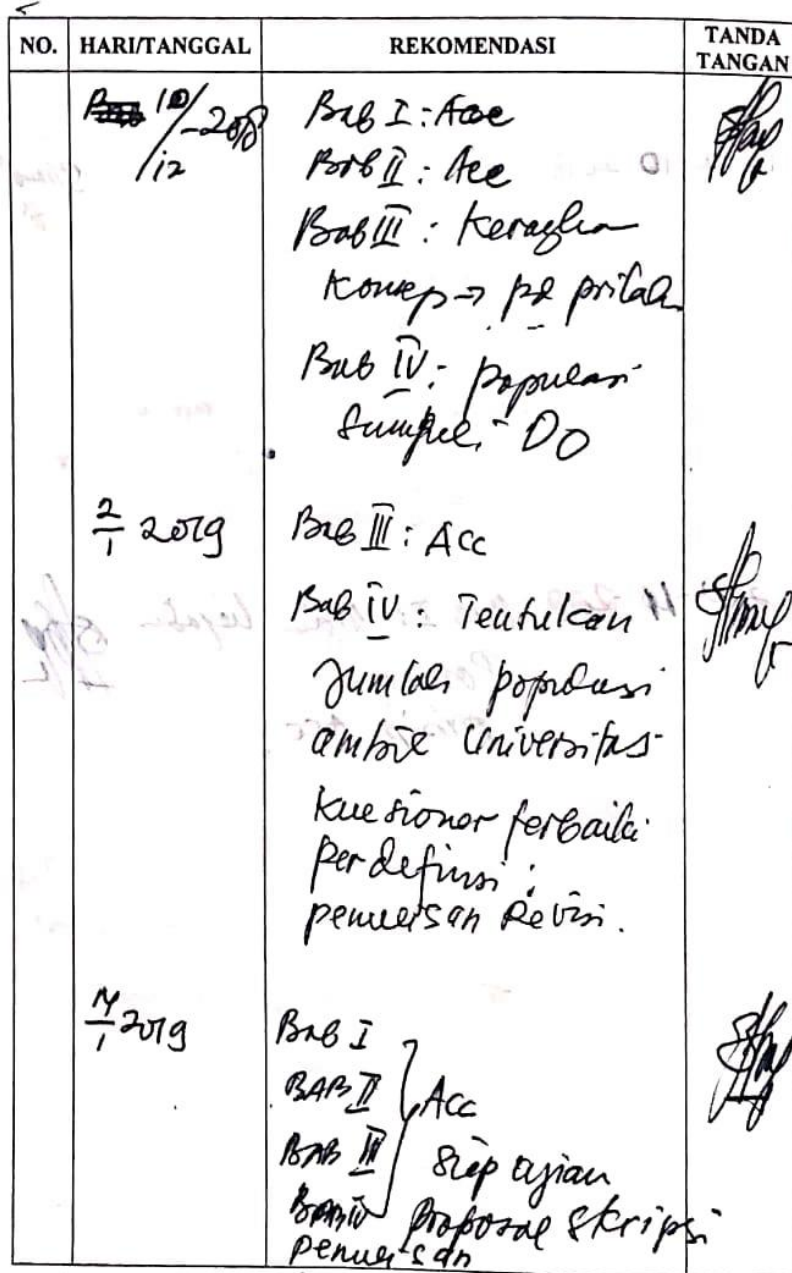 NO. HARI/TANGGAL REKOMENDASI TANDA TANGAN
10/12-2018 Bab I: Acc
Bab II: Acc
Bab III: Kerangka
Konsep → pd
Bab IV: populasi
Sampel, DO
2/1 2019 Bab III: Acc
Bab IV: Tentukan
Jumlah populasi
Universitas
Kuesioner perbaiki
per definisi
penulisan Revisi.
14/1 2019 Bab I
BAB II Acc
BAB III Siap ujian
BAB IV proposal skripsi
penulisan